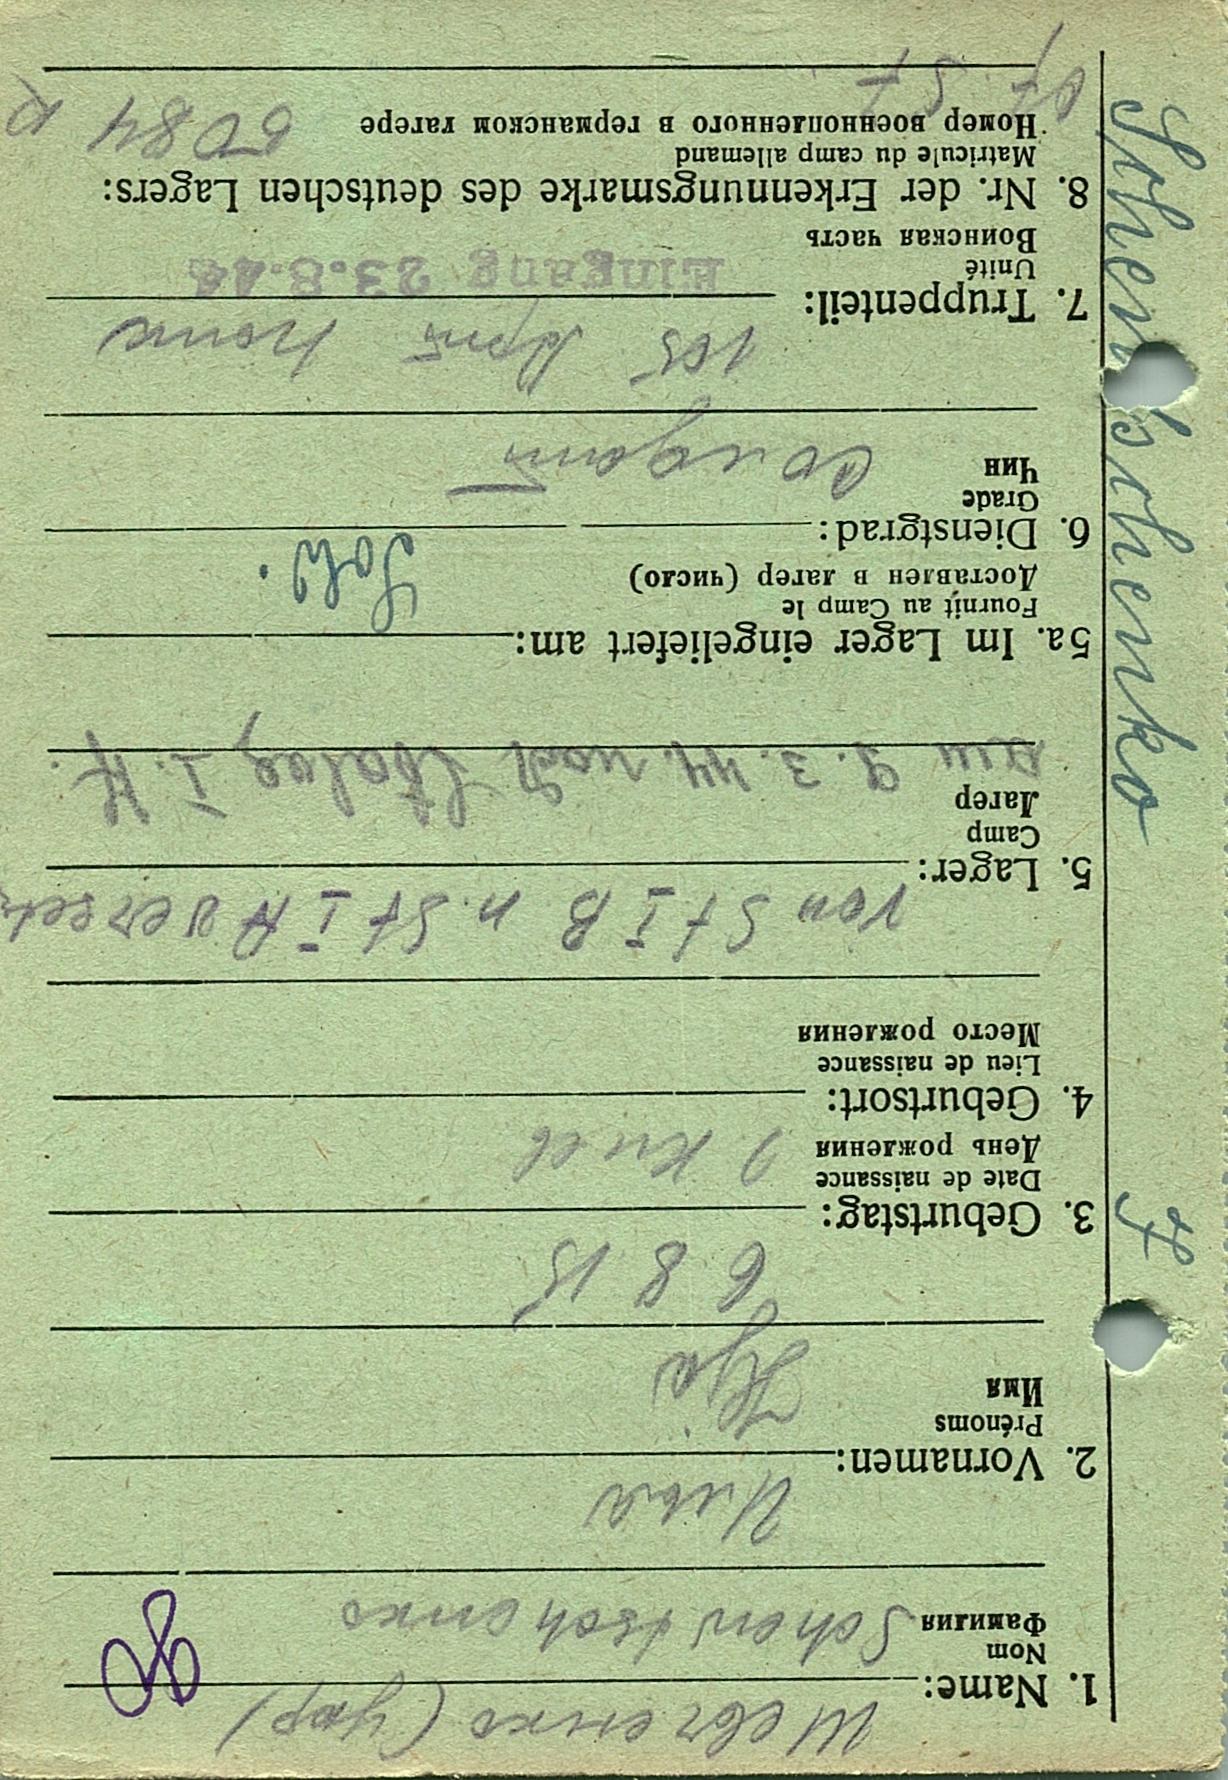 Schewtschenko J
Шевченко (укр)
1. Name:
Nom
Фамилия
Schewtschenko
Илья
2. Vornamen:
Prénoms
Имя
Ilja
6 8 15
3. Geburtstag:
Date de naissance
День рождения
Киев
4. Geburtsort:
Lieu de naissance
Место рождения
von St I B n. St I A versetzt
5. Lager:
Camp
Лагер
am 9. 3. 44. nach Stalag I. A.
5a. Im Lager eingeliefert am:
Fournit au Camp le
Доставлен в лагер (число)
Sold.
6. Dienstgrad:
Grade
Чин
Солдат
165 Арт полк
7. Truppenteil:
Unité
Воинская часть
Eingang 23.8.44
8. Nr. der Erkennungsmarke des deutschen Lagers:
Matricule du camp allemand
Номер военнопленного в германском лагере
5084